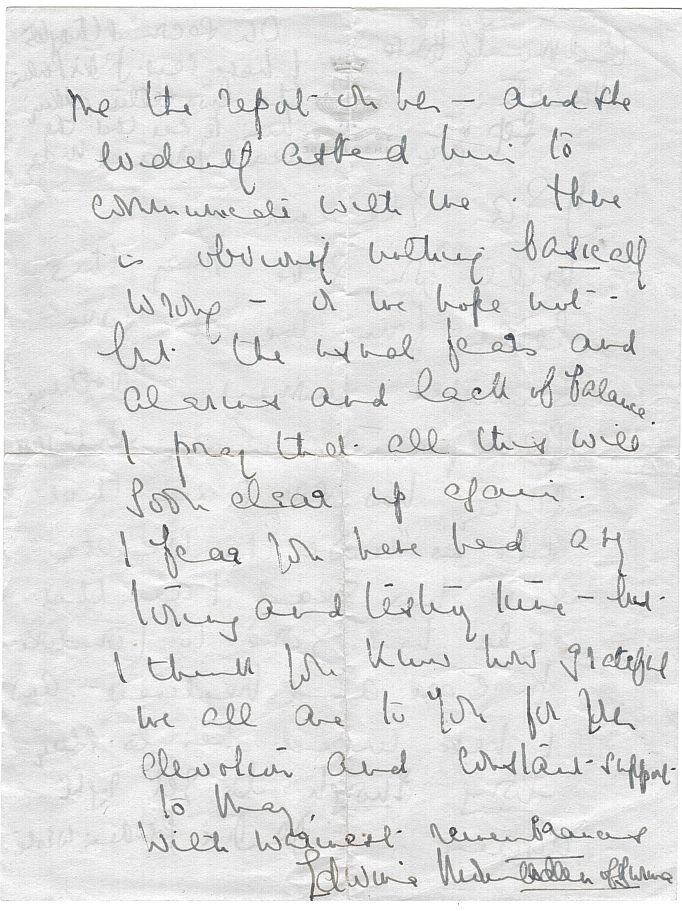 me the report on her – and she
evidently asked him to
communicate with me. There
is obviously nothing basically
wrong – or we hope not –
but the usual fears and
alarms and lack of balance.
I pray that all this will
soon clear up again.
I fear you have had a
tiring and testing time – but
I think you know how grateful
we all are to you for your
devotion and constant support
to Mary,
With warmest remembrances
Edwina Mountbatten of Burma